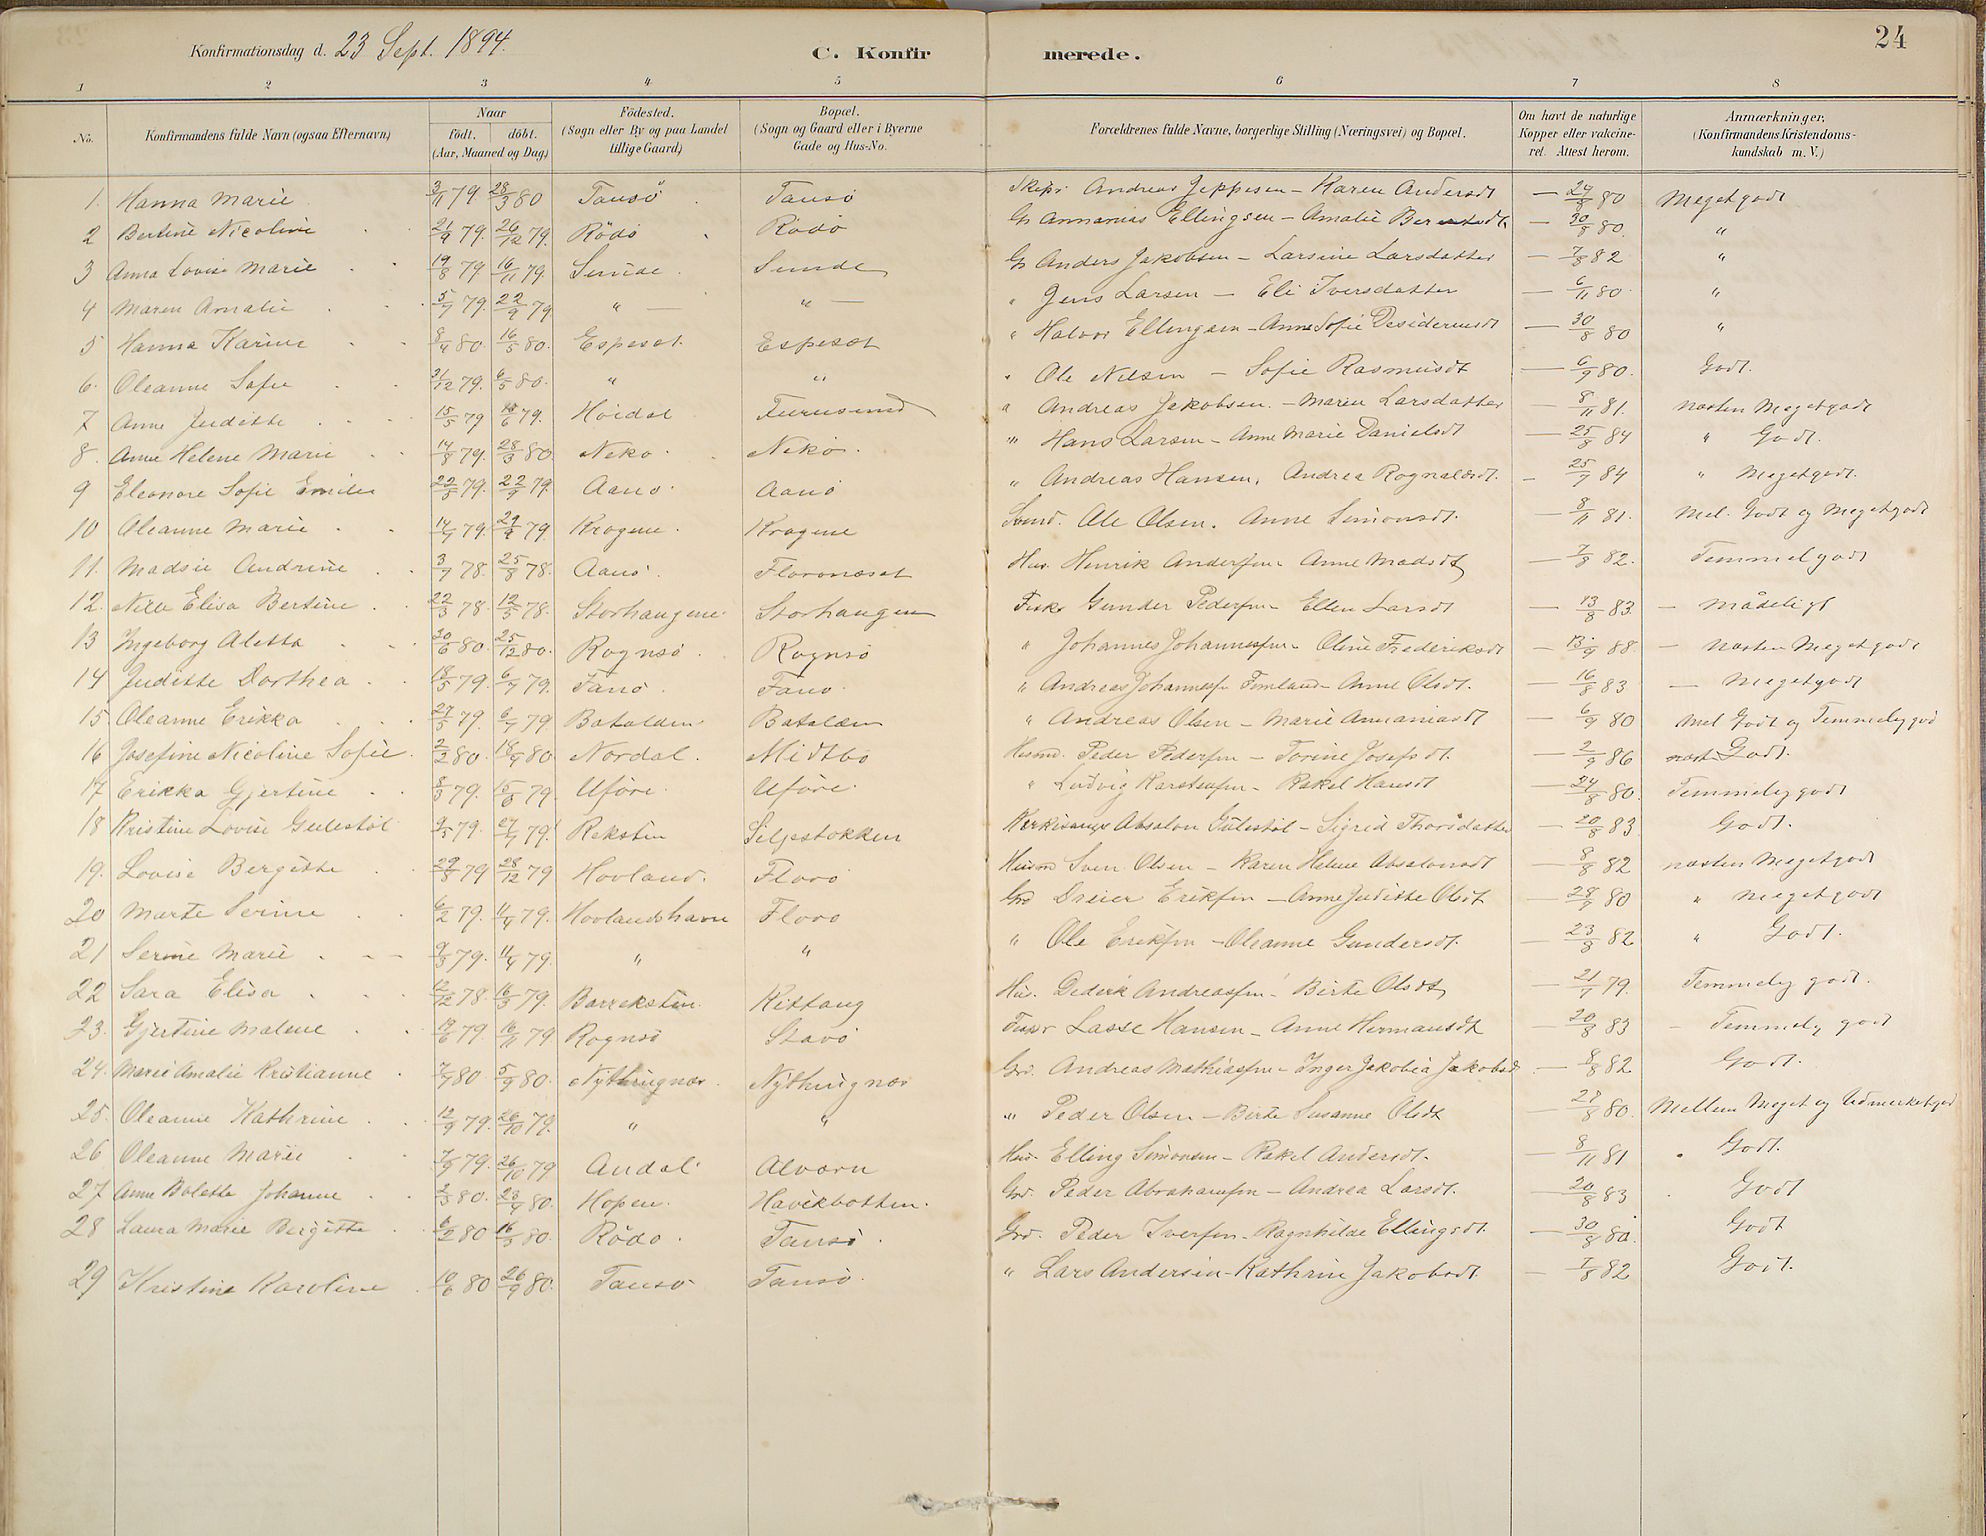 24
Konfirmationsdag d. 23 Sept. 1894.
C. Konfir merede.
1 2 3 4 5 6 7 8
No. Konfirmandens fulde Navn (ogsaa Efternavn) Naar født, døbt. (Aar, Maaned og Dag) Födested. (Sogn eller By og paa Landet tillige Gaard) Bopæl. (Sogn og Gaard eller i Byerne Gade og Hus-No. Forældrenes fulde Navne, borgerlige Stilling (Næringsvei) og Bopæl. Om havt de naturlige Kopper eller vakcineret. Attest herom. Anmærkninger, (Konfirmandens Kristendomskundskab m. V.)
1. Hanna Marie 3/11 79. 28/3 80 Tansø Tansø Andreas Jeppesen – Karen Andersdt — 24/8 80 Megetgodt
2 Bertine Nicoline 21/9 79. 26/12 79. Rödö Rödö Annanias Ellingsen – Amalie — 30/8 80. "
3 Anna Lovise Marie 19/8 79 16/11 79. Sunde Sunde Anders Jakobsen – Larsine Larsdatter — 7/8 82 "
4 Maren Amalie 5/7 79. 22/9 79 " — " — " Jens Larsen – Eli Iversdatter — 6/11 80. "
5 Hanna Karine 8/4 80 16/5 80. Espeset Espeset " Halvor Ellingsen – Anne Sofie — 30/8 80 "
6. Oleanne Sofie 31/12 79. 6/5 80. " " " Ole Nilsen – Sofie Rasmusdt — 6/9 80. Godt.
7 Anne Juditte 15/5 79 15/6 79. Höidal Furusund " Andreas Jakobsen. – Maren Larsdatter — 8/11 81. næsten Megetgodt
8. Anne Helene Marie 14/8 79. 28/3 80 Nekö Nekö. " Hans Larsen – Anne Marie Danielsdt — 25/8 84 " Godt.
9 Eleonore Sofie Emilie 22/5 79. 22/9 79. Aanö Aanö " Andreas Hansen, Andrea Rognaldsdt. – 25/7 84 " Megetgodt.
10 Oleanne Marie 14/7 79. 79. Krogene Krogene Ole Olsen. Anne Simonsdt. — 8/11 81. Mel. Godt og Megetgodt
11. Madsie Andrine 3/7 78. 25/8 78. Aanö Floronæset Hus. Henrik Andersen Anne Madsdt — 7/8 82. Temmel godt
12. Nille Elisa Bertine 22/3 78. 12/5 78. Storhaugene Storhaugen Fisk. Gunder Pedersen – Ellen Larsdt — 13/8 83. – Mådeligt
13 Ingeborg Aletta 20/6 80. 25/12 80. Rognsö Rognsö " Johannes Johannessen – Oline Frederiksdt — 13/9 88. – næsten Megetgodt
14 Juditte Dorthea 18/5 79. 6/7 79. Fanö Fanö " Andreas Johannessen – Anne Olsdt. — 16/8 83 – Megetgodt
15. Oleanne Erikka 27/5 79. 6/7 79 Batalden Batalden " Andreas Olsen – Marie Annaniasdt — 6/9 80 Mel Godt og Temmelig god
16 Josefine Nicoline Sofie 2/2 80. 18/4 80 Nordal. Midtbö Husmd. Peder Pedersen – Torine Josefsdt. — 2/9 86 næst Godt.
17 Erikka Gjertine 8/3 79. 15/6 79. Uföre Uföre. " Ludvig Karstensen – Rakel Hansdt — 24/8 80. Temmelig godt
18 Kristine Lovise Gulestöl 9/5 79. 27/7 79. Reksten Siljestokken Kirkesanger Absalon Gulestöl – Sigrid Thorsdatter — 20/8 83. Godt.
19. Lovise Bergitte 29/8 79 28/12 79 Hovland. Florö Husm Sven Olsen – Karen Helene Absalonsdt — 8/8 82 næsten Megetgodt
20 Marte Serine 6/2 79. 11/4 79. Hovlandshavn Florö Grd Dreier Eriksen – Anne Juditte Olsdt — 28/9 80 " Megetgodt
21 Serine Marie 9/3 79. 11/4 79. " " " Ole Eriksen – Oleanne Gundersdt. — 23/8 82 " Godt.
22 Sara Elisa 12/12 78. 16/3 79. Barrekstin Kittang Hus. Didrik Andreassen – Birte Olsdt — 21/7 79. Temmelig godt.
23. Gjertine Malene 19/6 79 16/11 79 Rognsö Stavö Lasse Hansen – Anne Hermansdt — 20/8 83 – Temmelig godt
24. Marie Amalie Kristianne 7/7 80 5/9 80. Nythingnæs. Nythingnæs Grd. Andreas Mathiassen – Inger Jakobia Jakobsd — 8/8 82 Godt.
25. Oleanne Kathrine 12/9 79. 26/10 79. " " " Peder Olsen – Birte Susanne Olsdt — 27/8 80. Mellem Meget og Udmerketgod
26 Oleanne Marie 7/9 79. 26/10 79. Andal Alvorn Hus. Elling Simonsen – Rakel Andersdt. — 8/11 81 Godt.
27 Anne Bolette Johanne 2/3 80. 23/4 80. Hopen. Havikbotten. Grd. Peder Abrahamsen – Andrea Larsdt. — 20/8 83 Godt
28 Laura Marie Bergitte 6/2 80 16/5 80. Rödö Tansö Grd. Peder Iversen – Ragnhilde Ellingsdt. — 30/8 80. Godt
29 Kristine Karoline 10/6 80 26/9 80. Tansö Tansö " Lars Andersen – Kathrine Jakobsdt. — 7/8 82 Godt.